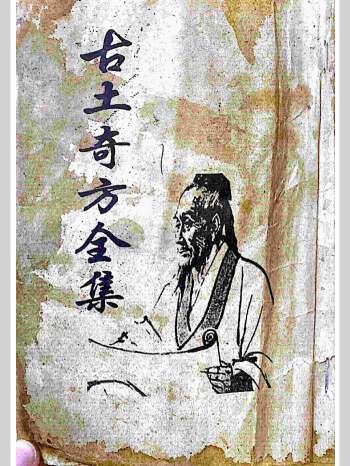 古土奇方全集